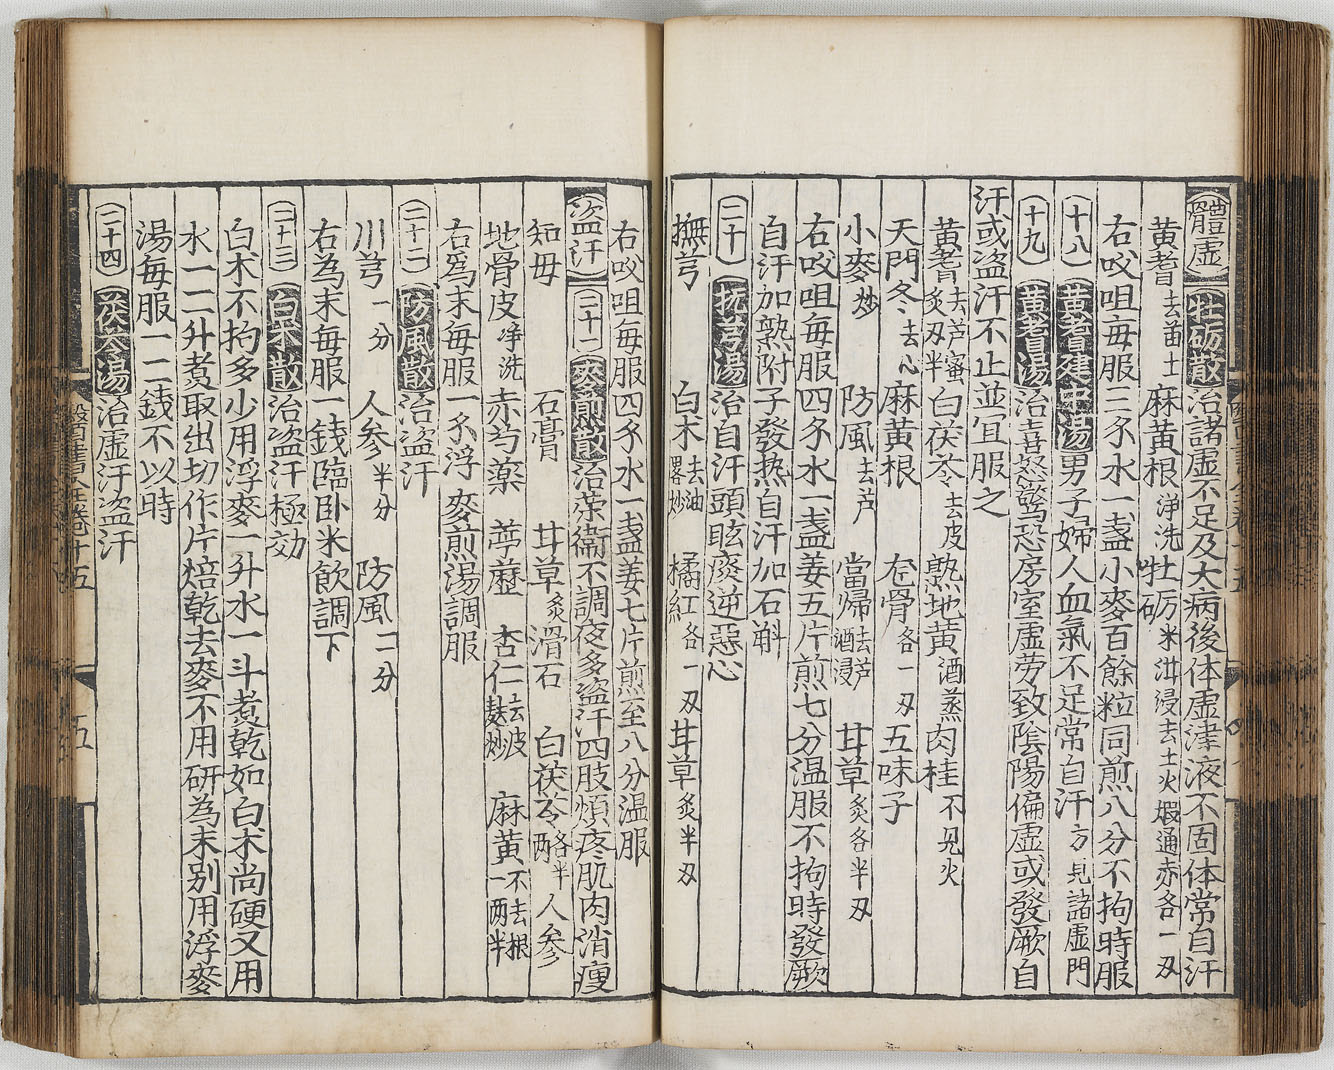 體虛 牡砺散 治諸虛不足及大病後体虛津液不固体常自汗
黄耆去苗土 麻黄根浄洗 牡砺米泔浸去土火煆通赤各一刄
右㕮咀每服三夕水一盞小麥百餘粒同煎八分不拘時服
十八 黄耆建中湯 男子婦人血氣不足常自汗方見諸虛門
十九 黄耆湯 治喜怒驚恐房室虛劳致陰陽偏虛或發厥自
汗或盗汗不止並宜服之
黄耆去芦蜜炙刄半 白茯苓去皮 熟地黄酒蒸 肉桂不見火
天門冬去心 麻黄根 龙骨各一刄 五味子
小麥炒 防風去芦 當歸去芦酒浸 甘草炙各半刄
右㕮咀每服四夕水一盞姜五片煎七分温服不拘時發厥
自汗加熟附子發热自汗加石斛
二十 抚芎湯 治自汗頭眩痰逆惡心
撫芎 白术去油畧炒 橘紅各一刄 甘草炙半刄
右㕮咀每服四夕水一盞姜七片煎至八分温服
盗汗 二十一 麥煎散 治荣衞不調夜多盗汗四肢煩疼肌肉消瘦
知母 石膏 甘草炙 滑石 白茯苓各半两 人参
地骨皮净洗 赤芍藥 葶藶 杏仁去皮麸炒 麻黄不去根一两半
右爲末每服一夕浮麥煎湯調服
二十二 防風散 治盗汗
川芎一分 人参半分 防風二分
右為末每服一錢臨卧米飲調下
二十三 白术散 治盗汗極効
白术不拘多少用浮麥一升水一斗煮乾如白术尚硬又用
水一二升煑取出切作片焙乾去麥不用研為末别用浮麥
湯每服一二錢不以時
二十四 茯苓湯 治虛汗盗汗